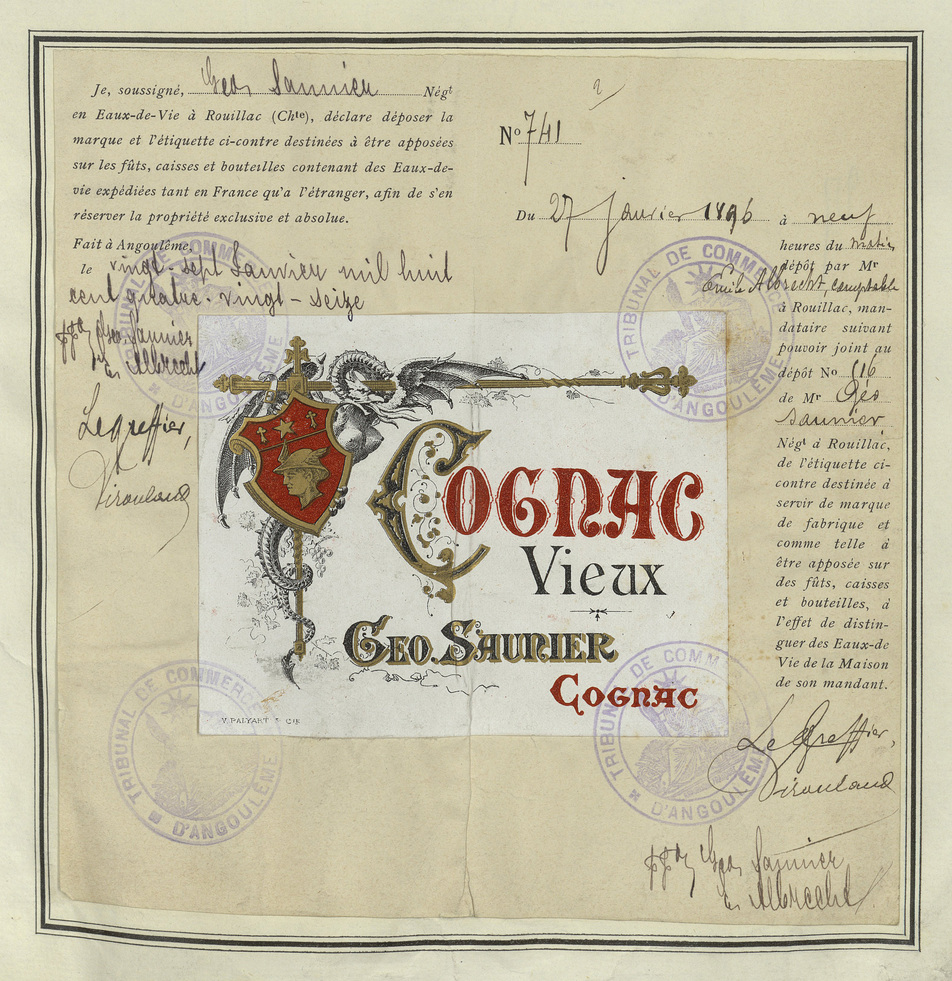 Je, soussigné, Geo Saunier Négt
en Eaux-de-Vie à Rouillac (Chte), déclare déposer la
marque et l'étiquette ci-contre destinées à être apposées
sur les fûts, caisses et bouteilles contenant des Eaux-de-
vie expédiées tant en France qu'a l'étranger, afin de s'en
réserver la propriété exclusive et absolue.
Fait à Angoulême,
le vingt-sept Janvier mil huit
cent quatre-vingt-seize
ppon Geo Saunier
Em Albrecht
Le Greffier,
Nº 741
Du 27 Janvier 1896 à neuf
heures du matin
dépôt par Mr
Emile Albrecht, comptable
à Rouillac, man-
dataire suivant
pouvoir joint au
dépôt No 616
de Mr Géo
Saunier
Négt à Rouillac,
de l'étiquette ci-
contre destinée à
servir de marque
de fabrique et
comme telle à
être apposée sur
des fûts, caisses
et bouteilles, à
l'effet de distin-
guer des Eaux-de
Vie de la Maison
de son mandant.
Le Greffier,
ppon Geo Saunier
Em Albrecht
COGNAC
Vieux
GEO. SAUNIER
COGNAC
TRIBUNAL DE COMMERCE
D'ANGOULÊME
TRIBUNAL DE COMMERCE
D'ANGOULÊME
TRIBUNAL DE COMMERCE
D'ANGOULÊME
TRIBUNAL DE COMM
D'ANGOULÊME